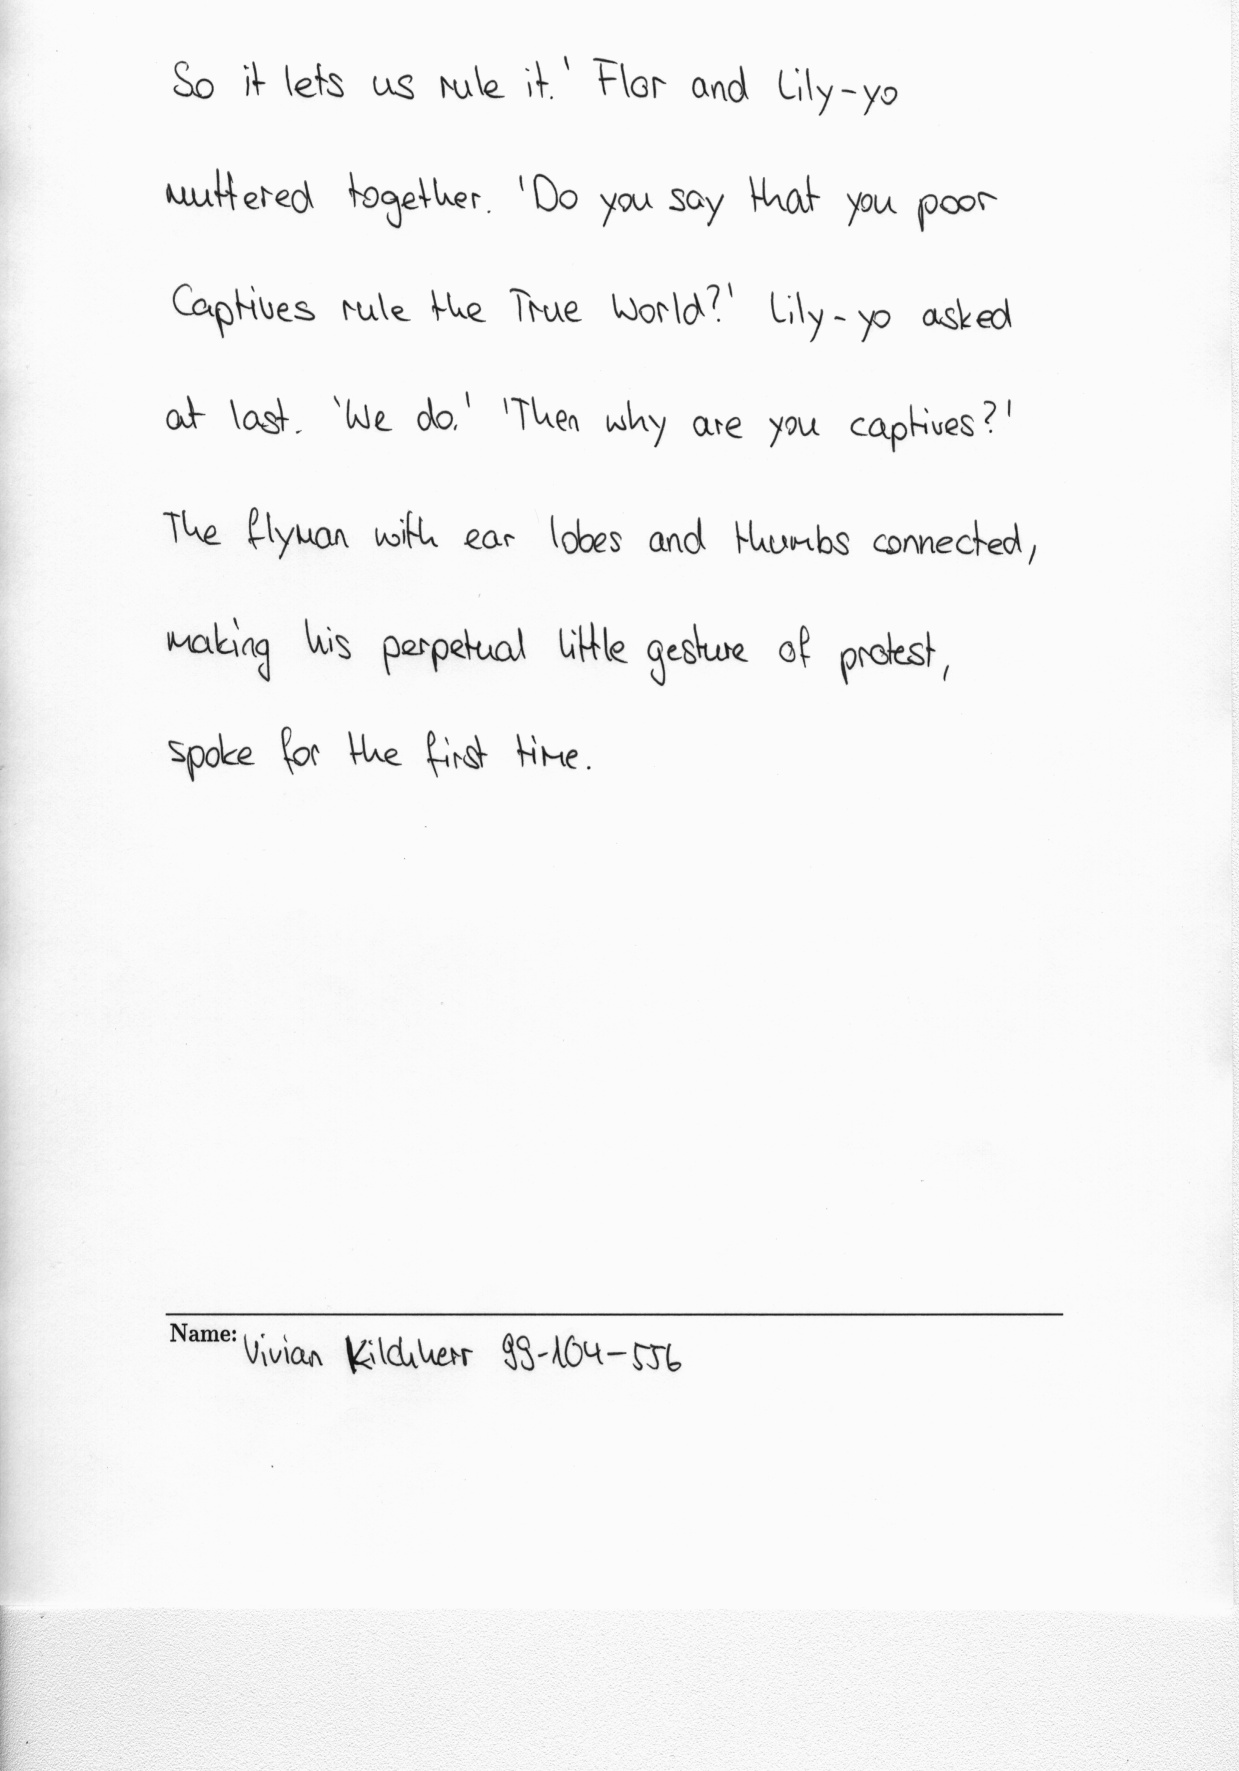 So it lets us rule it.' Flor and Lily-yo
muttered together. 'Do you say that you poor
Captives rule the True World?' Lily-yo asked
at last. 'We do.' 'Then why are you captives?'
The flyman with ear lobes and thumbs connected,
making his perpetual little gesture of protest,
spoke for the first time.
Name: Vivian Kilchherr 99-104-556